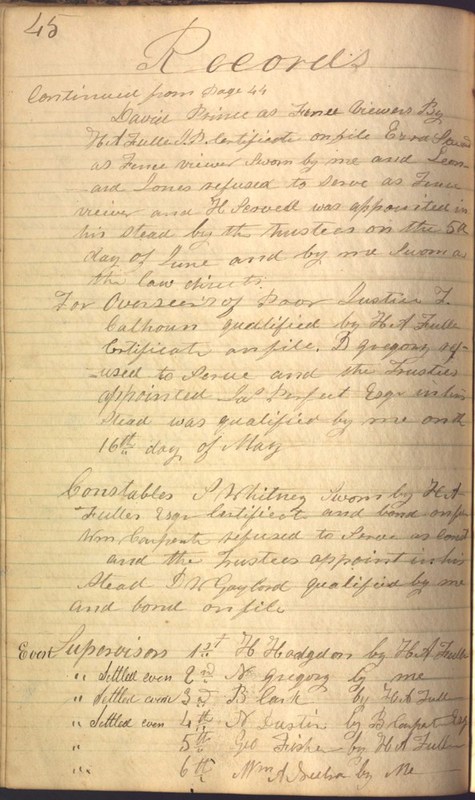 45
Records
Continued from Page 44
David Prince as Fence Viewers By
H A Fuller J.P. Certificate on file Ezra
as Fence viewer Sworn by me and Leon-
ard Jones refused to serve as Fence
viewer and H Sewell was appointed in
his stead by the trustees on the 5th
day of June and by me Sworn as
the law directs
For Overseers of Poor Justice F.
Calhoun qualified by H. A Fuller
Certificate on file. D gregory ref-
-used to Serve and the Trustees
appointed Jas Perfect Esqr in his
Stead was qualified by me on the
16th day of May
Constables S Whitney Sworn by H A
Fuller Esqr Certificate and bond on file
Wm Carpenter refused to Serve as Const
and the Trustees appoint in his
Stead D W Gaylord qualified by me
and bond on file
Even Supervisors 1st H Hodgdon by H A Fuller
" Settled even 2nd N gregory by me
" Settled even 3rd B by H A Fuller
" Settled even 4th N Dustin by B Esq
" 5th Geo Fisher by H A Fuller
" 6th Wm A by Me